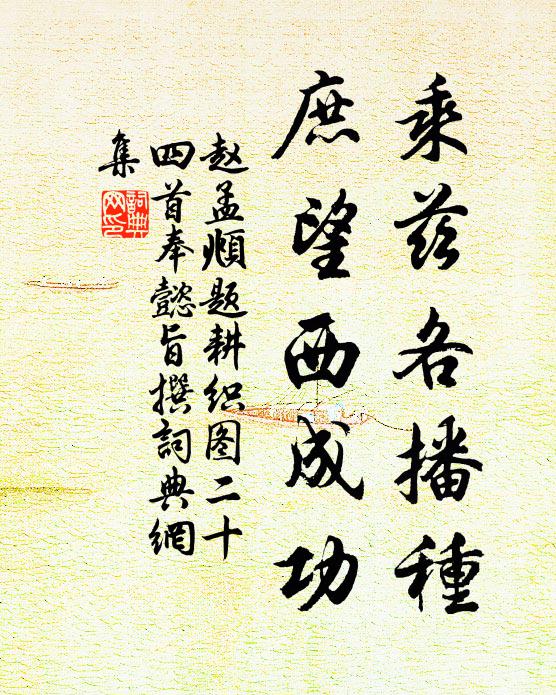 乘兹各播種
庶望西成功
赵孟頫题耕织图二十
四首奉懿旨撰詞典網
集
詞典
网印